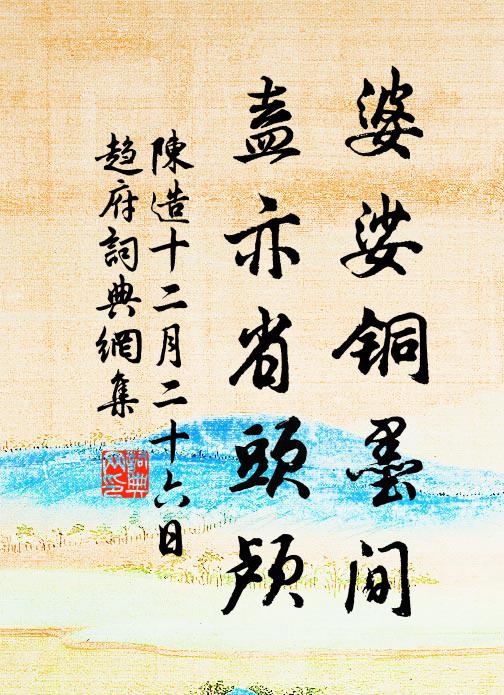 婆娑铜墨间
盍亦省頭颅
陳造十二月二十六日
趋府詞典網集